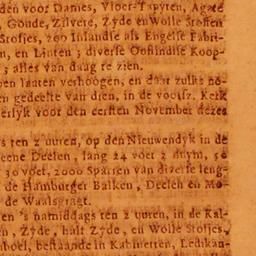 den voor Dames, Vloer-Tapyten, Agate
, Goude, Zilvere, Zyde en Wolle Stoffen
Stofjes, zoo Inlandse als Engelse Fabri-
en, en Linten; diverse Oostindise Koop-
; alles van daag te zien.
ben lauten verhoogen, en daar zulks no-
en gedeelte van dien, in de voorsz. Kerk
erlyk voor den eersten November dezes
s ten 2 uuren, op den Nieuwendyk in de
eene Deelen, lang 24 voet 2 duym, 50
30 voet, 2000 Sparren van diverse leng-
de Hamburger Balken, Deelen en Mo-
de Waalsgragt.
en 's namiddags ten 2 uuren, in de Kal-
n, Zyde, half Zyde, en Wolle Stofjes,
boel, bestaande in Kabinetten, Ledikan-